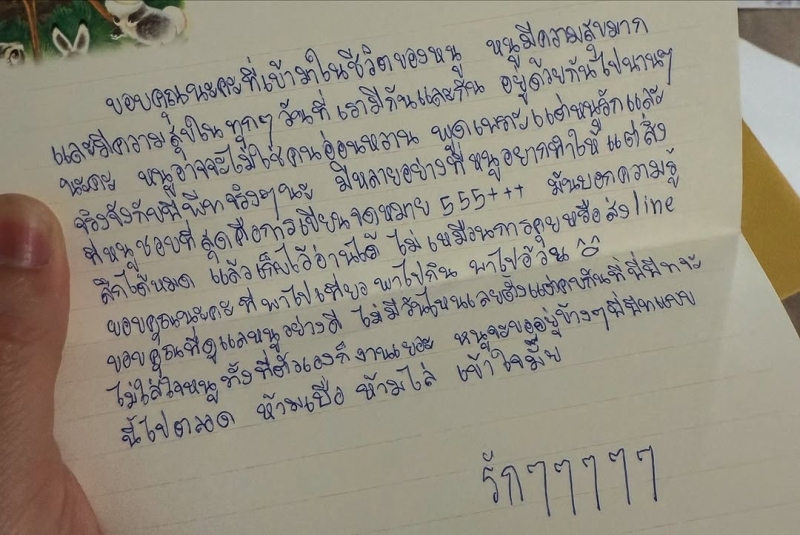 ขอบคุณนะคะที่เข้ามาในชีวิตของหนู หนูมีความสุขมาก
และมีความสุขในทุกๆวันที่เรามีกันและกัน อยู่ด้วยกันไปนานๆ
นะคะ หนูอาจจะไม่ใช่คนอ่อนหวาน พูดเพราะแต่หนูรักและ
จริงจังกับพี่พีทจริงๆนะ มีหลายอย่างที่หนูอยากทำให้ แต่สิ่ง
ที่หนูชอบที่สุดคือการเขียนจดหมาย 555+++ มันบอกความรู้
สึกได้หมด แล้วเก็บไว้อ่านได้ ไม่เหมือนการคุยหรือส่ง line
ขอบคุณนะคะที่พาไปเที่ยว พาไปกิน พาไปอ้วน
ขอบคุณที่ดูแลหนูอย่างดี ไม่มีวันไหนเลยตั้งแต่คบกันที่พี่พีทจะ
ไม่ใส่ใจหนู ทั้งที่ตัวเองก็งานเยอะ หนูจะขออยู่ข้างๆพี่พีทแบบ
นี้ไปตลอด ห้ามเบื่อ ห้ามไล่ เข้าใจมั๊ย
รักๆๆๆๆๆ